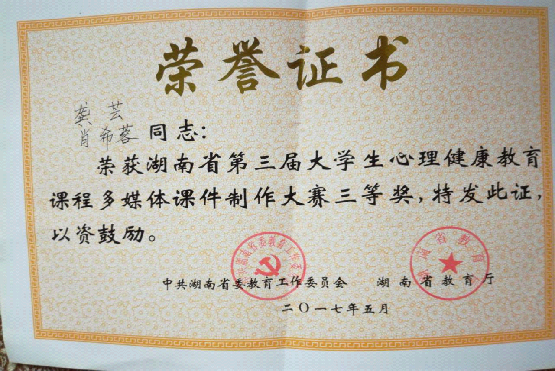 荣誉证书
龚芸
肖希蓉 同志：
荣获湖南省第三届大学生心理健康教育
课程多媒体课件制作大赛三等奖，特发此证，
以资鼓励。
中共湖南省委教育工作委员会 湖南省教育厅
二〇一七年五月